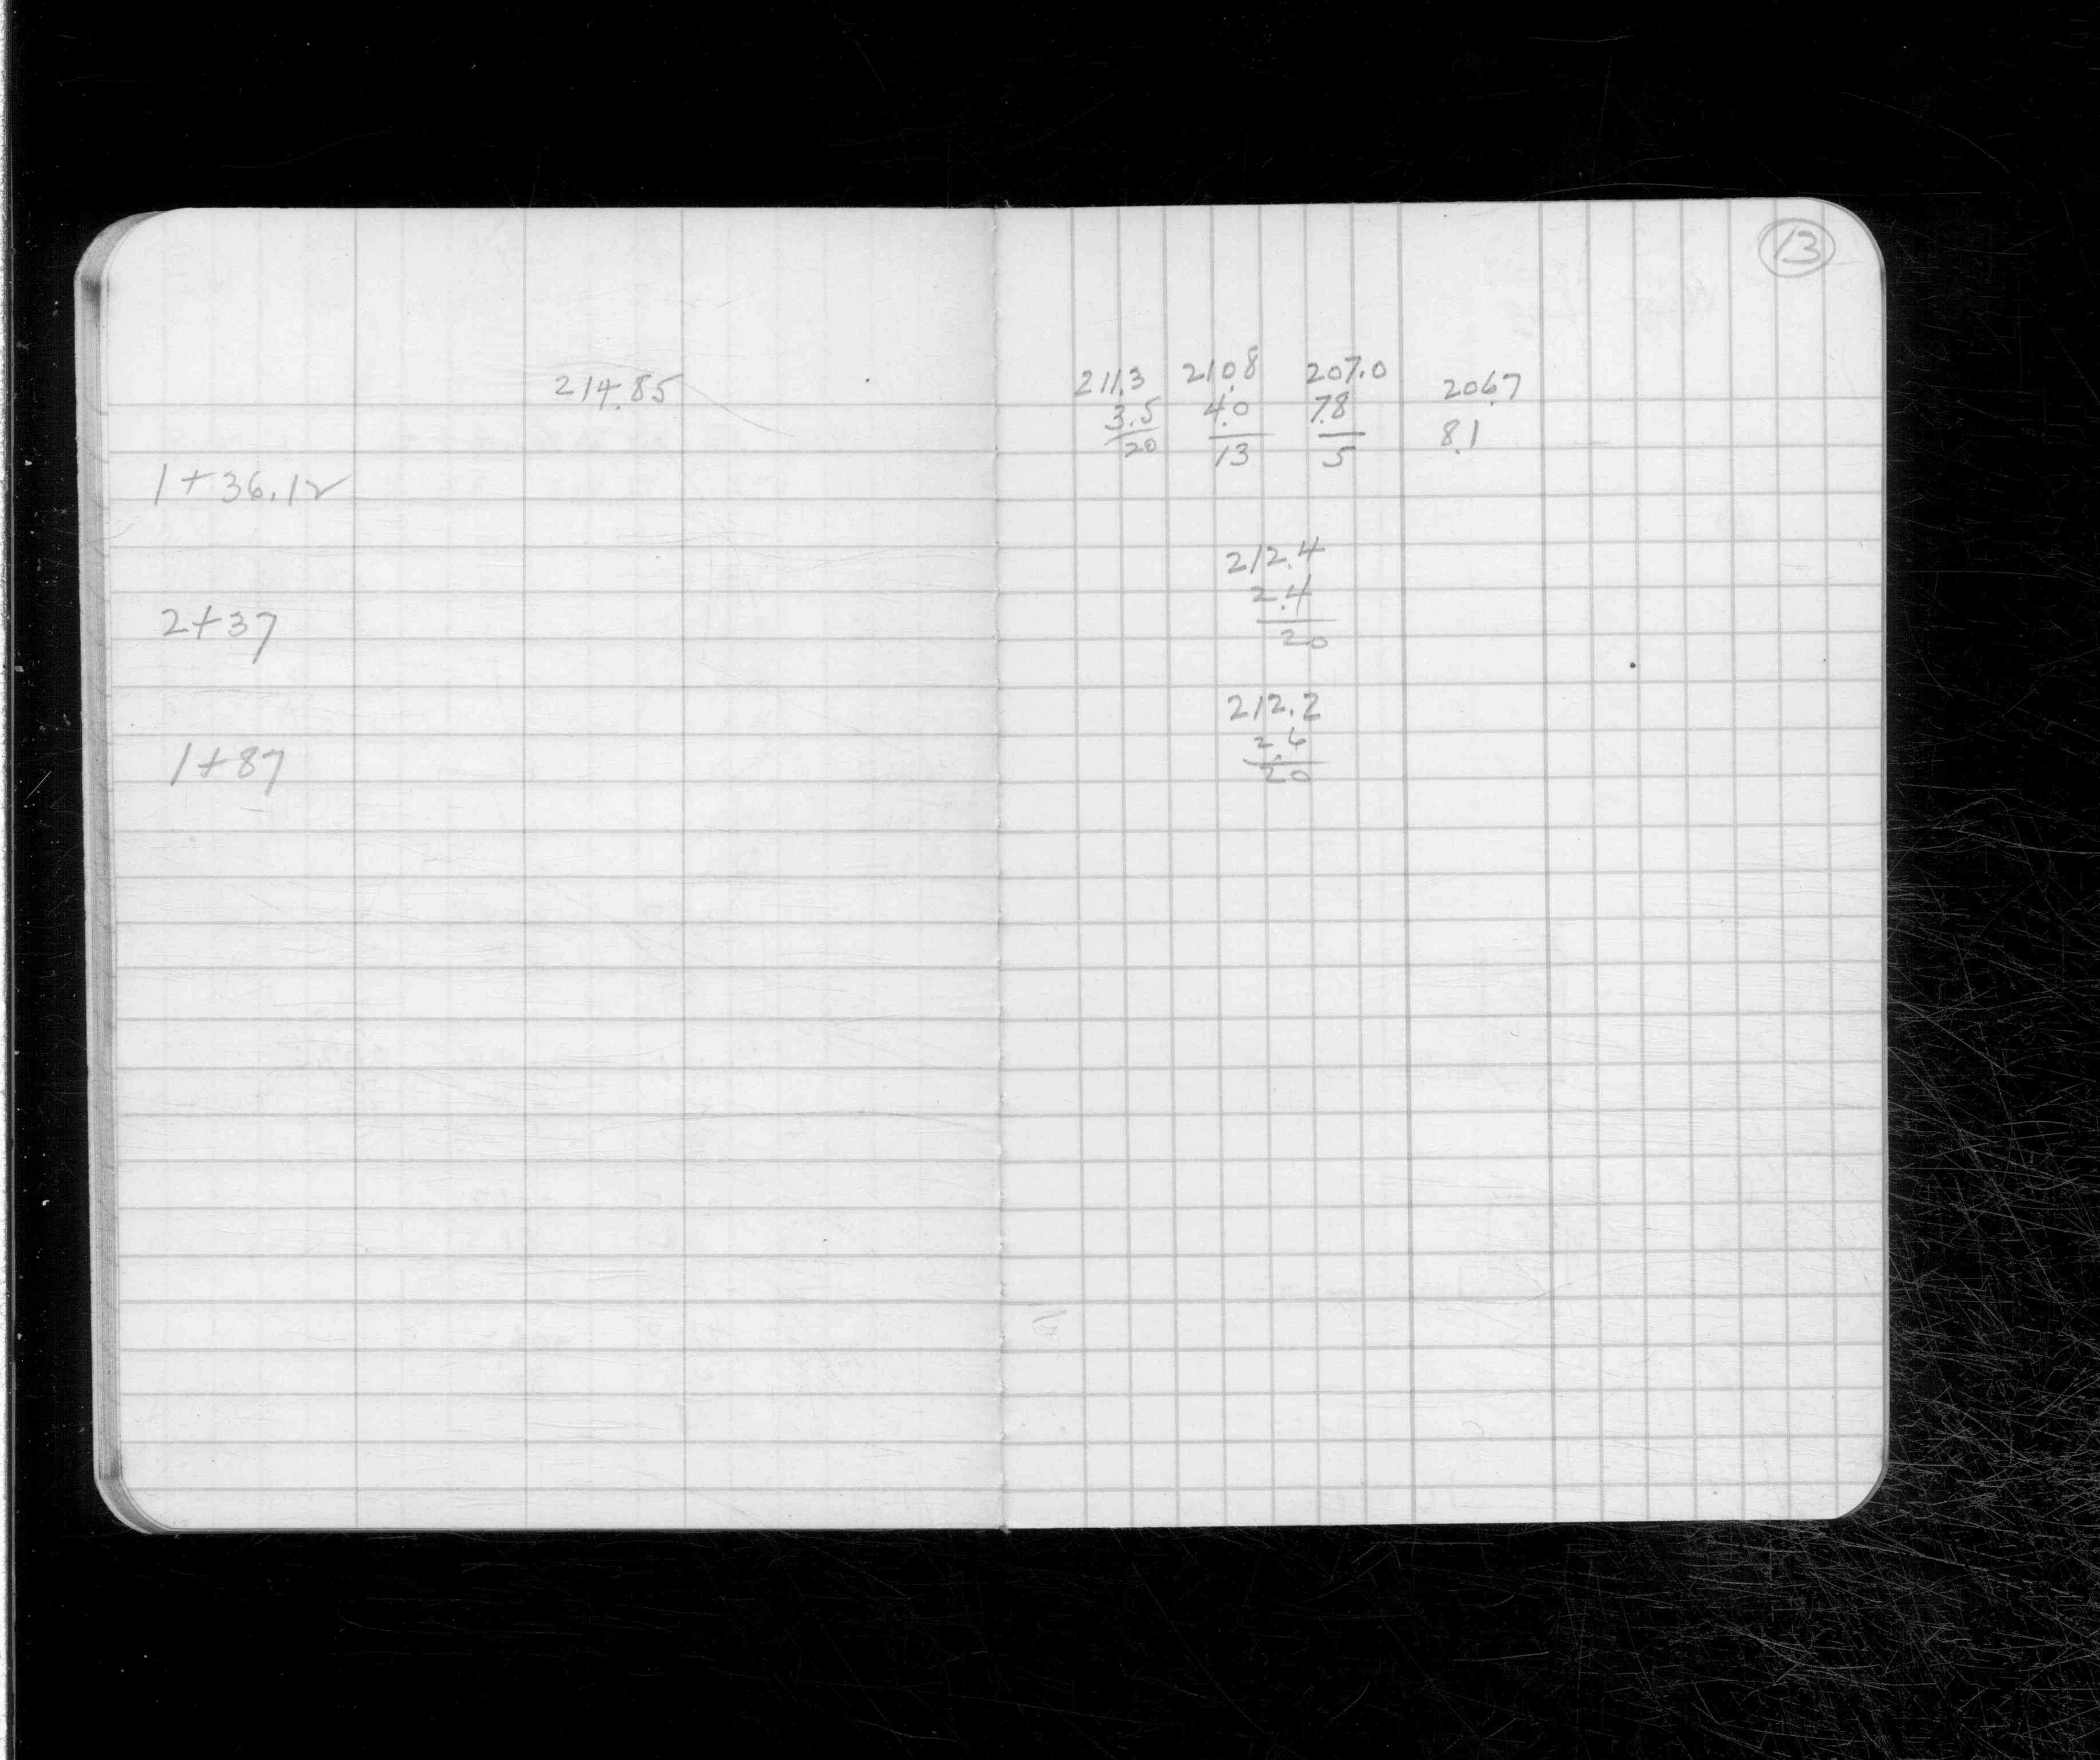 214.85
1+36.12
2+37
1+87
13
211.3 210.8 207.0 206.7
3.5 4.0 7.8 8.1
20 13 5
212.4
2.4
20
212.2
2.6
20